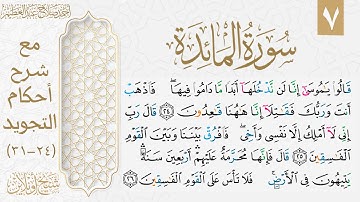 أحمد صلاح عبد العظيم
٧
سورة المائدة
مع
شرح
أحكام
التجويد
(٢٤-٣١)
قَالُوا يَٰمُوسَىٰٓ إِنَّا لَن نَّدْخُلَهَآ أَبَدًا مَّا دَامُوا فِيهَا ۖ فَٱذْهَبْ
أَنتَ وَرَبُّكَ فَقَٰتِلَآ إِنَّا هَٰهُنَا قَٰعِدُونَ ٢٤ قَالَ رَبِّ
إِنِّى لَآ أَمْلِكُ إِلَّا نَفْسِى وَأَخِى ۖ فَٱفْرُقْ بَيْنَنَا وَبَيْنَ ٱلْقَوْمِ
ٱلْفَٰسِقِينَ ٢٥ قَالَ فَإِنَّهَا مُحَرَّمَةٌ عَلَيْهِمْ ۛ أَرْبَعِينَ سَنَةً ۛ
يَتِيهُونَ فِى ٱلْأَرْضِ ۚ فَلَا تَأْسَ عَلَى ٱلْقَوْمِ ٱلْفَٰسِقِينَ ٢٦